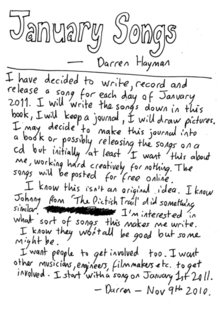 January Songs
— Darren Hayman
I have decided to write, record and
release a song for each day of January
2011. I will write the songs down in this
book, I will keep a journal, I will draw pictures.
I may decide to make this journal into
a book or possibly releasing the songs on a
cd but initially at least I want this about
me, working hard creatively for nothing. The
songs will be posted for free online.
I know this isn't an original idea. I know
Johnny from 'The Pictish Trail' did something
similar. I'm interested in
what sort of songs this makes me write.
I know they won't all be good but some
might be.
I want people to get involved too. I want
other musicians, engineers, filmmakers etc. to get
involved. I start with a song on January 1st 2011.
— Darren — Nov 9th 2010.